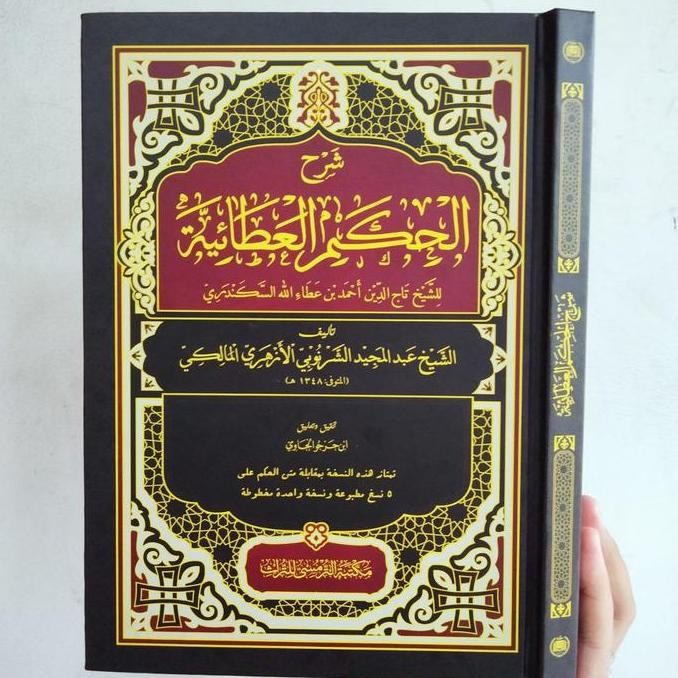 شرح
الحكم العطائية
للشيخ تاج الدين أحمد بن عطاء الله السكندري
تأليف
الشيخ عبد المجيد الشرنوبي الأزهري المالكي
(المتوفى: ١٣٤٨ هـ)
تحقيق وتعليق
ابن حرجو الجاوي
تمتاز هذه النسخة بمقابلة متن الحكم على
٥ نسخ مطبوعة ونسخة واحدة مخطوطة
مكتبة الترمسي للتراث
شرح الحكم العطائية